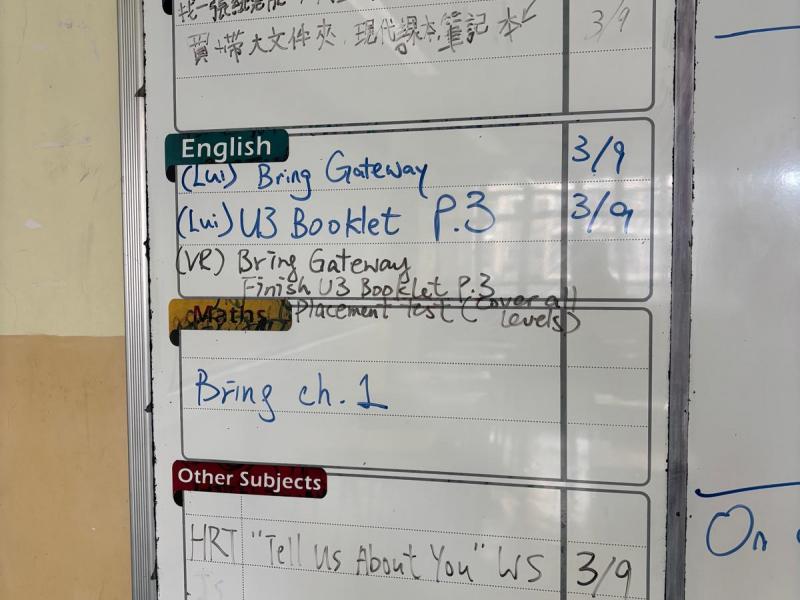 找一張紙
買+帶大文件夾, 現代課本, 筆記本 3/9
English
(Lui) Bring Gateway 3/9
(Lui) U3 Booklet P.3 3/9
(VR) Bring Gateway
Finish U3 Booklet P.3
Placement Test (Cover all
levels)
Maths
Bring ch. 1
Other Subjects
HRT "Tell Us About You" WS 3/9
On